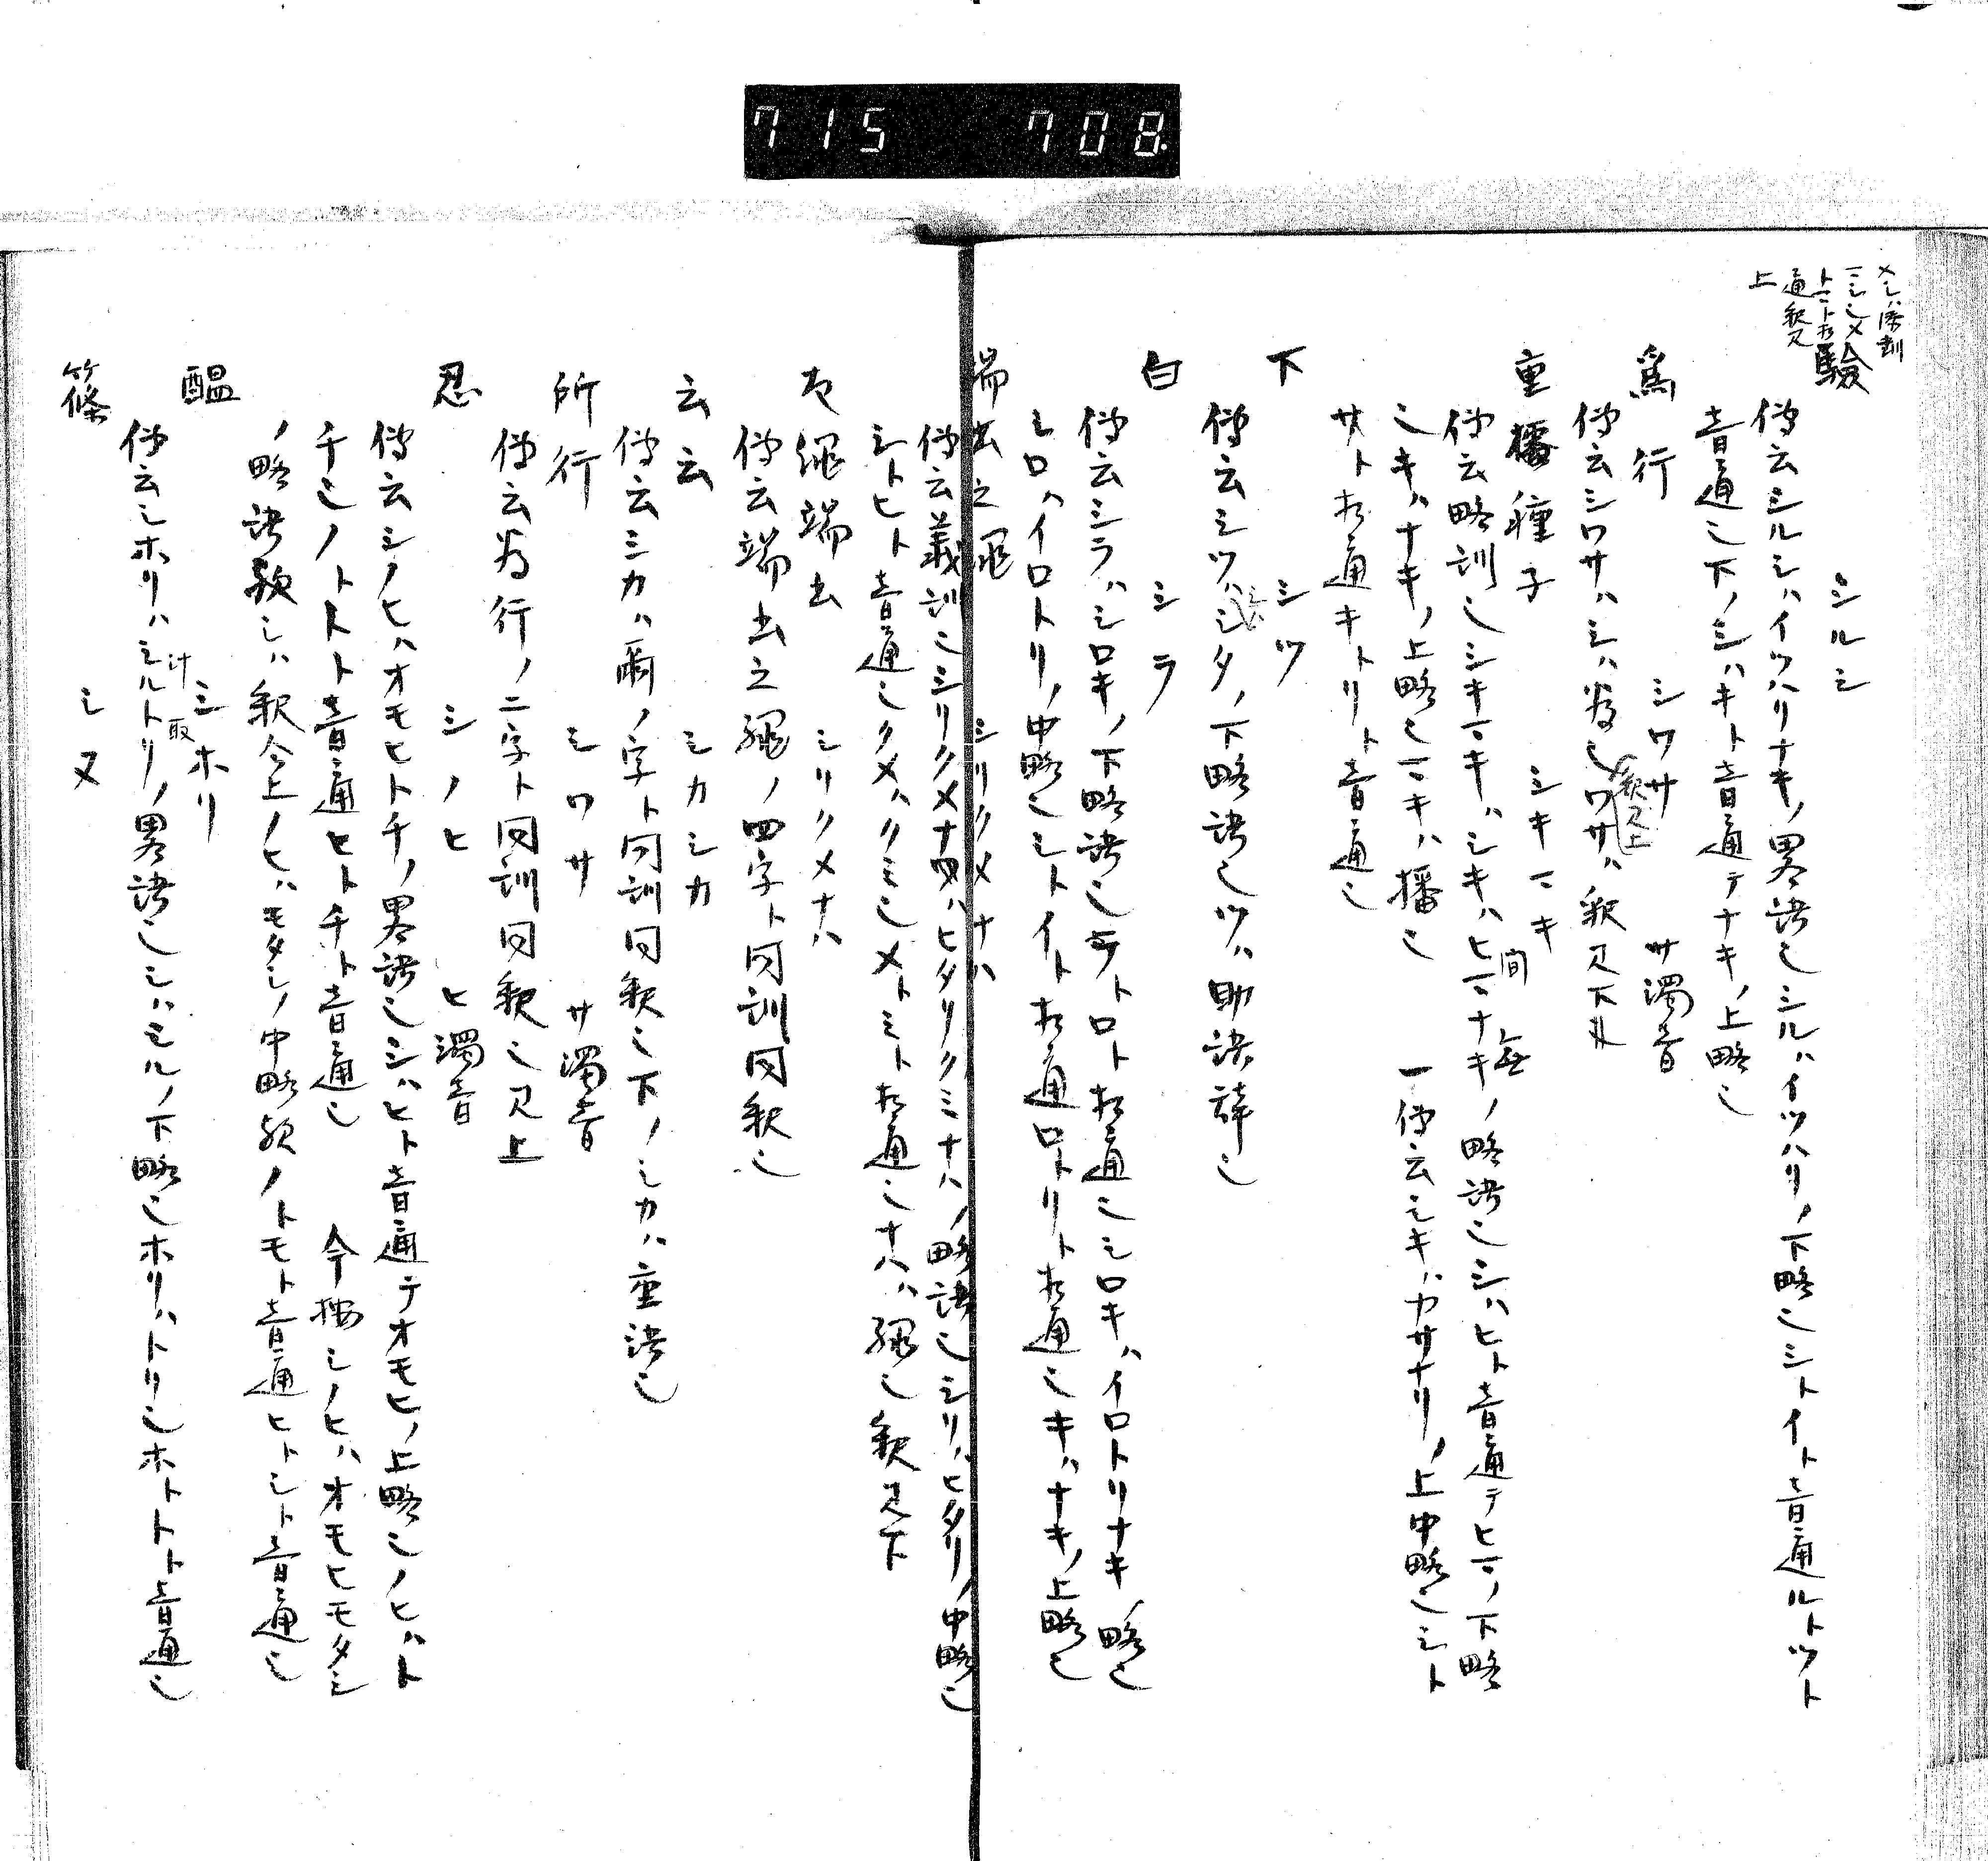 715 708.
メシハ漢訓
上
驗 シルシ
傳云シルシハイツハリナキノ畧語也シルハイツハリノ下略也シトイト音通ルトツト
音通也下ノシハキト音通テナキノ上略也
爲行 シワサ サ濁音
傳云シワサハシハ爲也ワサハ釈見下
重播種子 シキマキ
傳云略訓也シキマキハシキハヒマナキノ略語也シハヒト音通テヒマノ下略
間 無
也キハナキノ上略也マキハ播也 一傳云シキハカサナリノ上中略也シト
サト相通キトリト音通也
下 シツ
傳云シツハシタノ下略語也ツハ助語辞也
白 シラ
傳云シラハシロキノ下略語也ラトロト相通也シロキハイロトリナキノ略也
シロハイロトリノ中略也シトイト相通ロトリト相通也キハナキノ上略也
端出之繩 シリクメナハ
傳云義訓也シリクメナハハヒタリクミナハノ略語也シリハヒタリノ中略也
シトヒト音通也クメハクミ也メトミト相通也ナハハ繩也釈見下
左繩端出 シリクメナハ
傳云端出之繩ノ四字ト同訓同釈也
云云 シカシカ
傳云シカハ爾ノ字ト同訓同釈也下ノシカハ重語也
所行 シワサ サ濁音
傳云爲行ノ二字ト同訓同釈也見上
忍 シノヒ ヒ濁音
傳云シノヒハオモヒトチノ畧語也シハヒト音通テオモヒノ上略也ノヒハト
チ也ノトトト音通ヒトチト音通也 今按シノヒハオモヒモタシ
ノ略語歟シハ釈今上ノヒハモタシノ中略歟ノトモト音通ヒトシト音通也
醞 シホリ
汁 取
傳云シホリハシルトリノ畧語也シハシルノ下略也ホリハトリ也ホトトト音通也
篠 シヌ